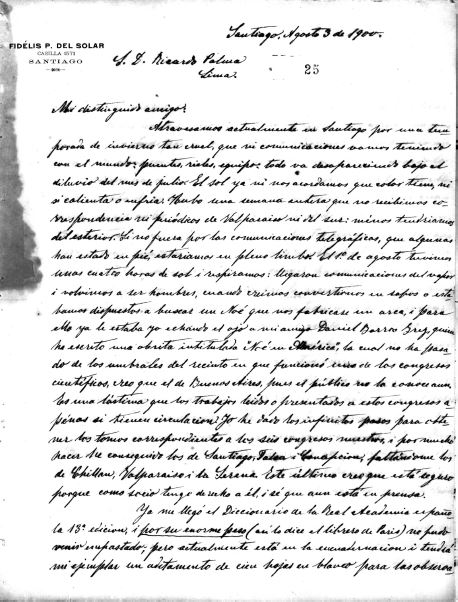 Santiago, Agosto 3 de 1900.
FIDÉLIS P. DEL SOLAR
CASILLA 1571
SANTIAGO
S. D. Ricardo Palma
Lima.
25
Mui distinguido amigo:
Atravesamos actualmente en Santiago por una tem
porada de invierno tan cruel, que ni comunicaciones vamos teniendo
con el mundo: puentes, rieles, equipo: todo va desapareciendo bajo el
diluvio del mes de julio. El sol ya ni nos acordamos que color tiene, ni
si calienta o enfria. Hubo una semana entera que no recibimos co
rrespondencia ni periódicos de Valparaiso ni del sur: ménos tendriamos
del esterior. Si no fuera por las comunicaciones telegráficas, que algunas
han estado en pié, estariamos en pleno limbo. El 1º de agosto tuvimos
unas cuatro horas de sol i respiramos: llegaron comunicaciones del vapor
i volvimos a ser hombres, cuando creimos convertirnos en sapos o está
bamos dispuestos a buscar un Noé que nos fabricase un arca, i para
ello ya le estaba yo echando el ojo a mi amigo Daniel Barros Grez, quien
ha escrito una obrita intitulada "Noé en América", la cual no ha pasa
do de los umbrales del recinto en que funcionó uno de los congresos
científicos, creo que el de Buenos Aires, pues el público no la conoce aun.
Es una lástima que los trabajos leidos o presentados a estos congresos a
pénas si tienen circulacion. Yo he dado los infinitos pasos para obte
ner los tomos correspondientes a los seis congresos nuestros, i por mucho
hacer he conseguido los de Santiago, Talca i Concepcion, faltándome los
de Chillan, Valparaiso i la Serena. Este último creo que está seguro
porque como socio tengo derecho a él, i sé que aun está en prensa.
Ya me llegó el Diccionario de la Real Academia espano
la 13ª edicion, i por su enorme peso (así lo dice el librero de Paris) no pudo
venir empastado; pero actualmente está en la encuadernacion i tendrá
mi ejemplar un aditamento de cien hojas en blanco para las observa